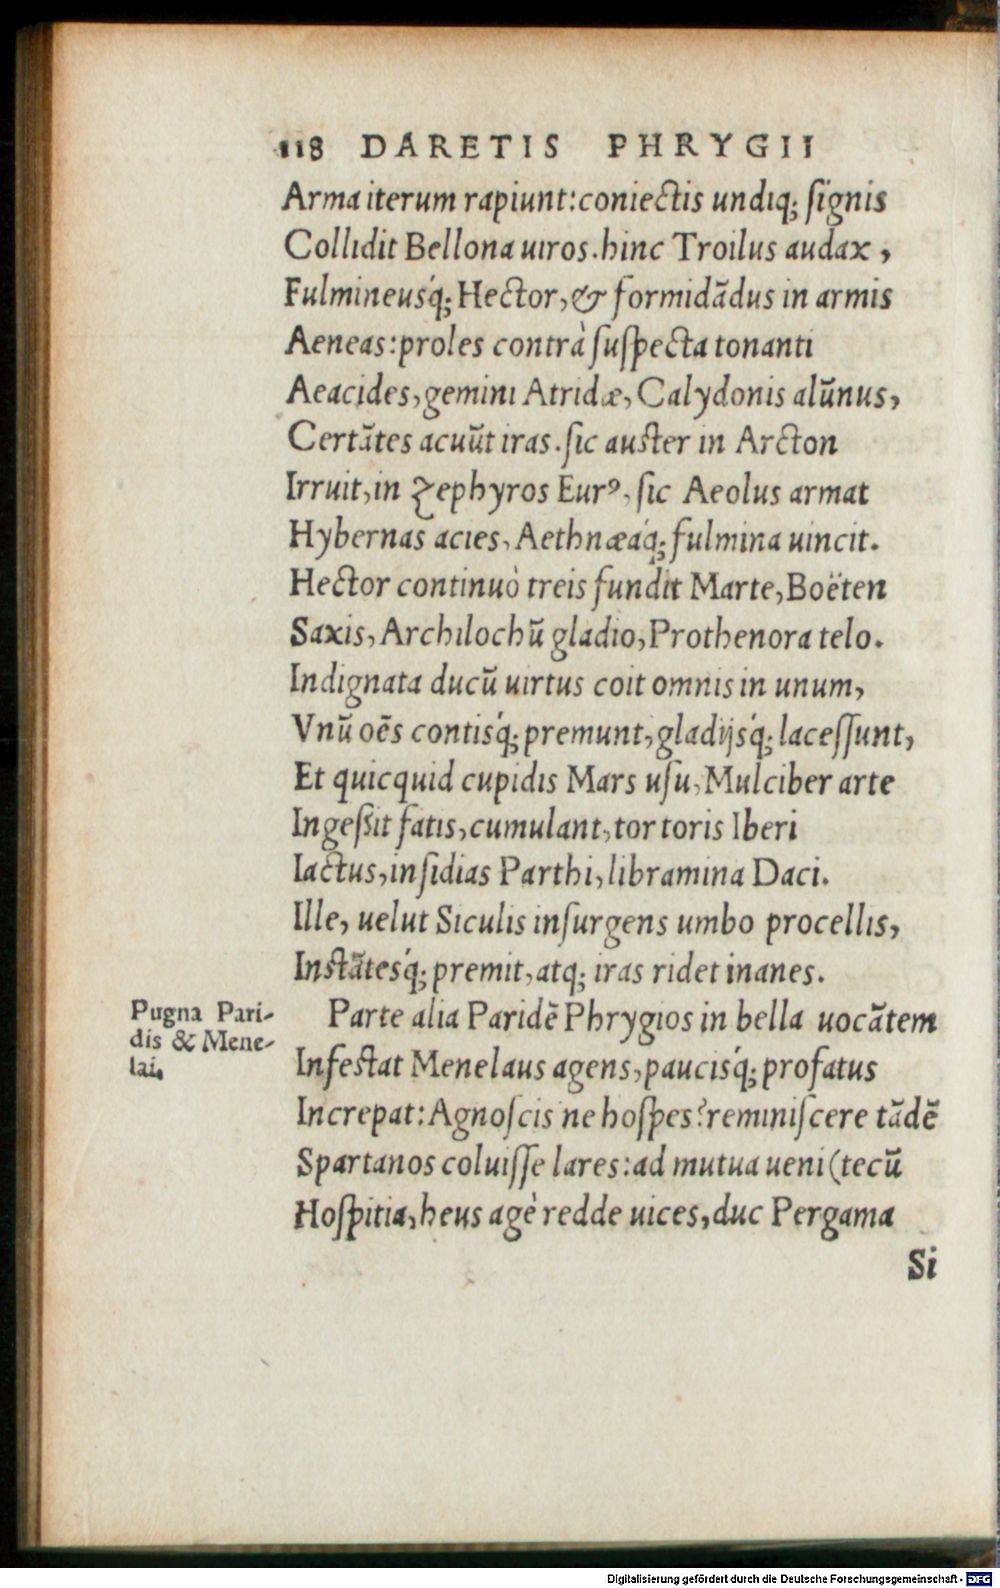 118 DARETIS PHRYGII
Arma iterum rapiunt: coniectis undiq; ſignis
Collidit Bellona uiros. hinc Troilus audax,
Fulmineusq́; Hector, & formidãdus in armis
Aeneas: proles contrà ſuſpecta tonanti
Aeacides, gemini Atridæ, Calydonis alũnus,
Certãtes acuũt iras. ſic auſter in Arcton
Irruit, in Zephyros Eurꝰ, ſic Aeolus armat
Hybernas acies, Aethnæaq́; fulmina uincit.
Hector continuò treis fundit Marte, Boëten
Saxis, Archilochũ gladio, Prothenora telo.
Indignata ducũ uirtus coit omnis in unum,
Vnũ oẽs contisq́; premunt, gladijsq́; laceſſunt,
Et quicquid cupidis Mars uſu, Mulciber arte
Ingeſsit fatis, cumulant, tortoris Iberi
Iactus, inſidias Parthi, libramina Daci.
Ille, uelut Siculis inſurgens umbo procellis,
Inſtãtesq́; premit, atq; iras ridet inanes.
Pugna Pari-
dis & Mene-
lai.
Parte alia Paridẽ Phrygios in bella uocãtem
Infeſtat Menelaus agens, paucisq́; profatus
Increpat: Agnoſcis ne hoſpes? reminiſcere tãdẽ
Spartanos coluiſſe lares: ad mutua ueni (tecũ
Hoſpitia, heus agè redde uices, duc Pergama
Si
Digitalisierung gefördert durch die Deutsche Forschungsgemeinschaft - DFG